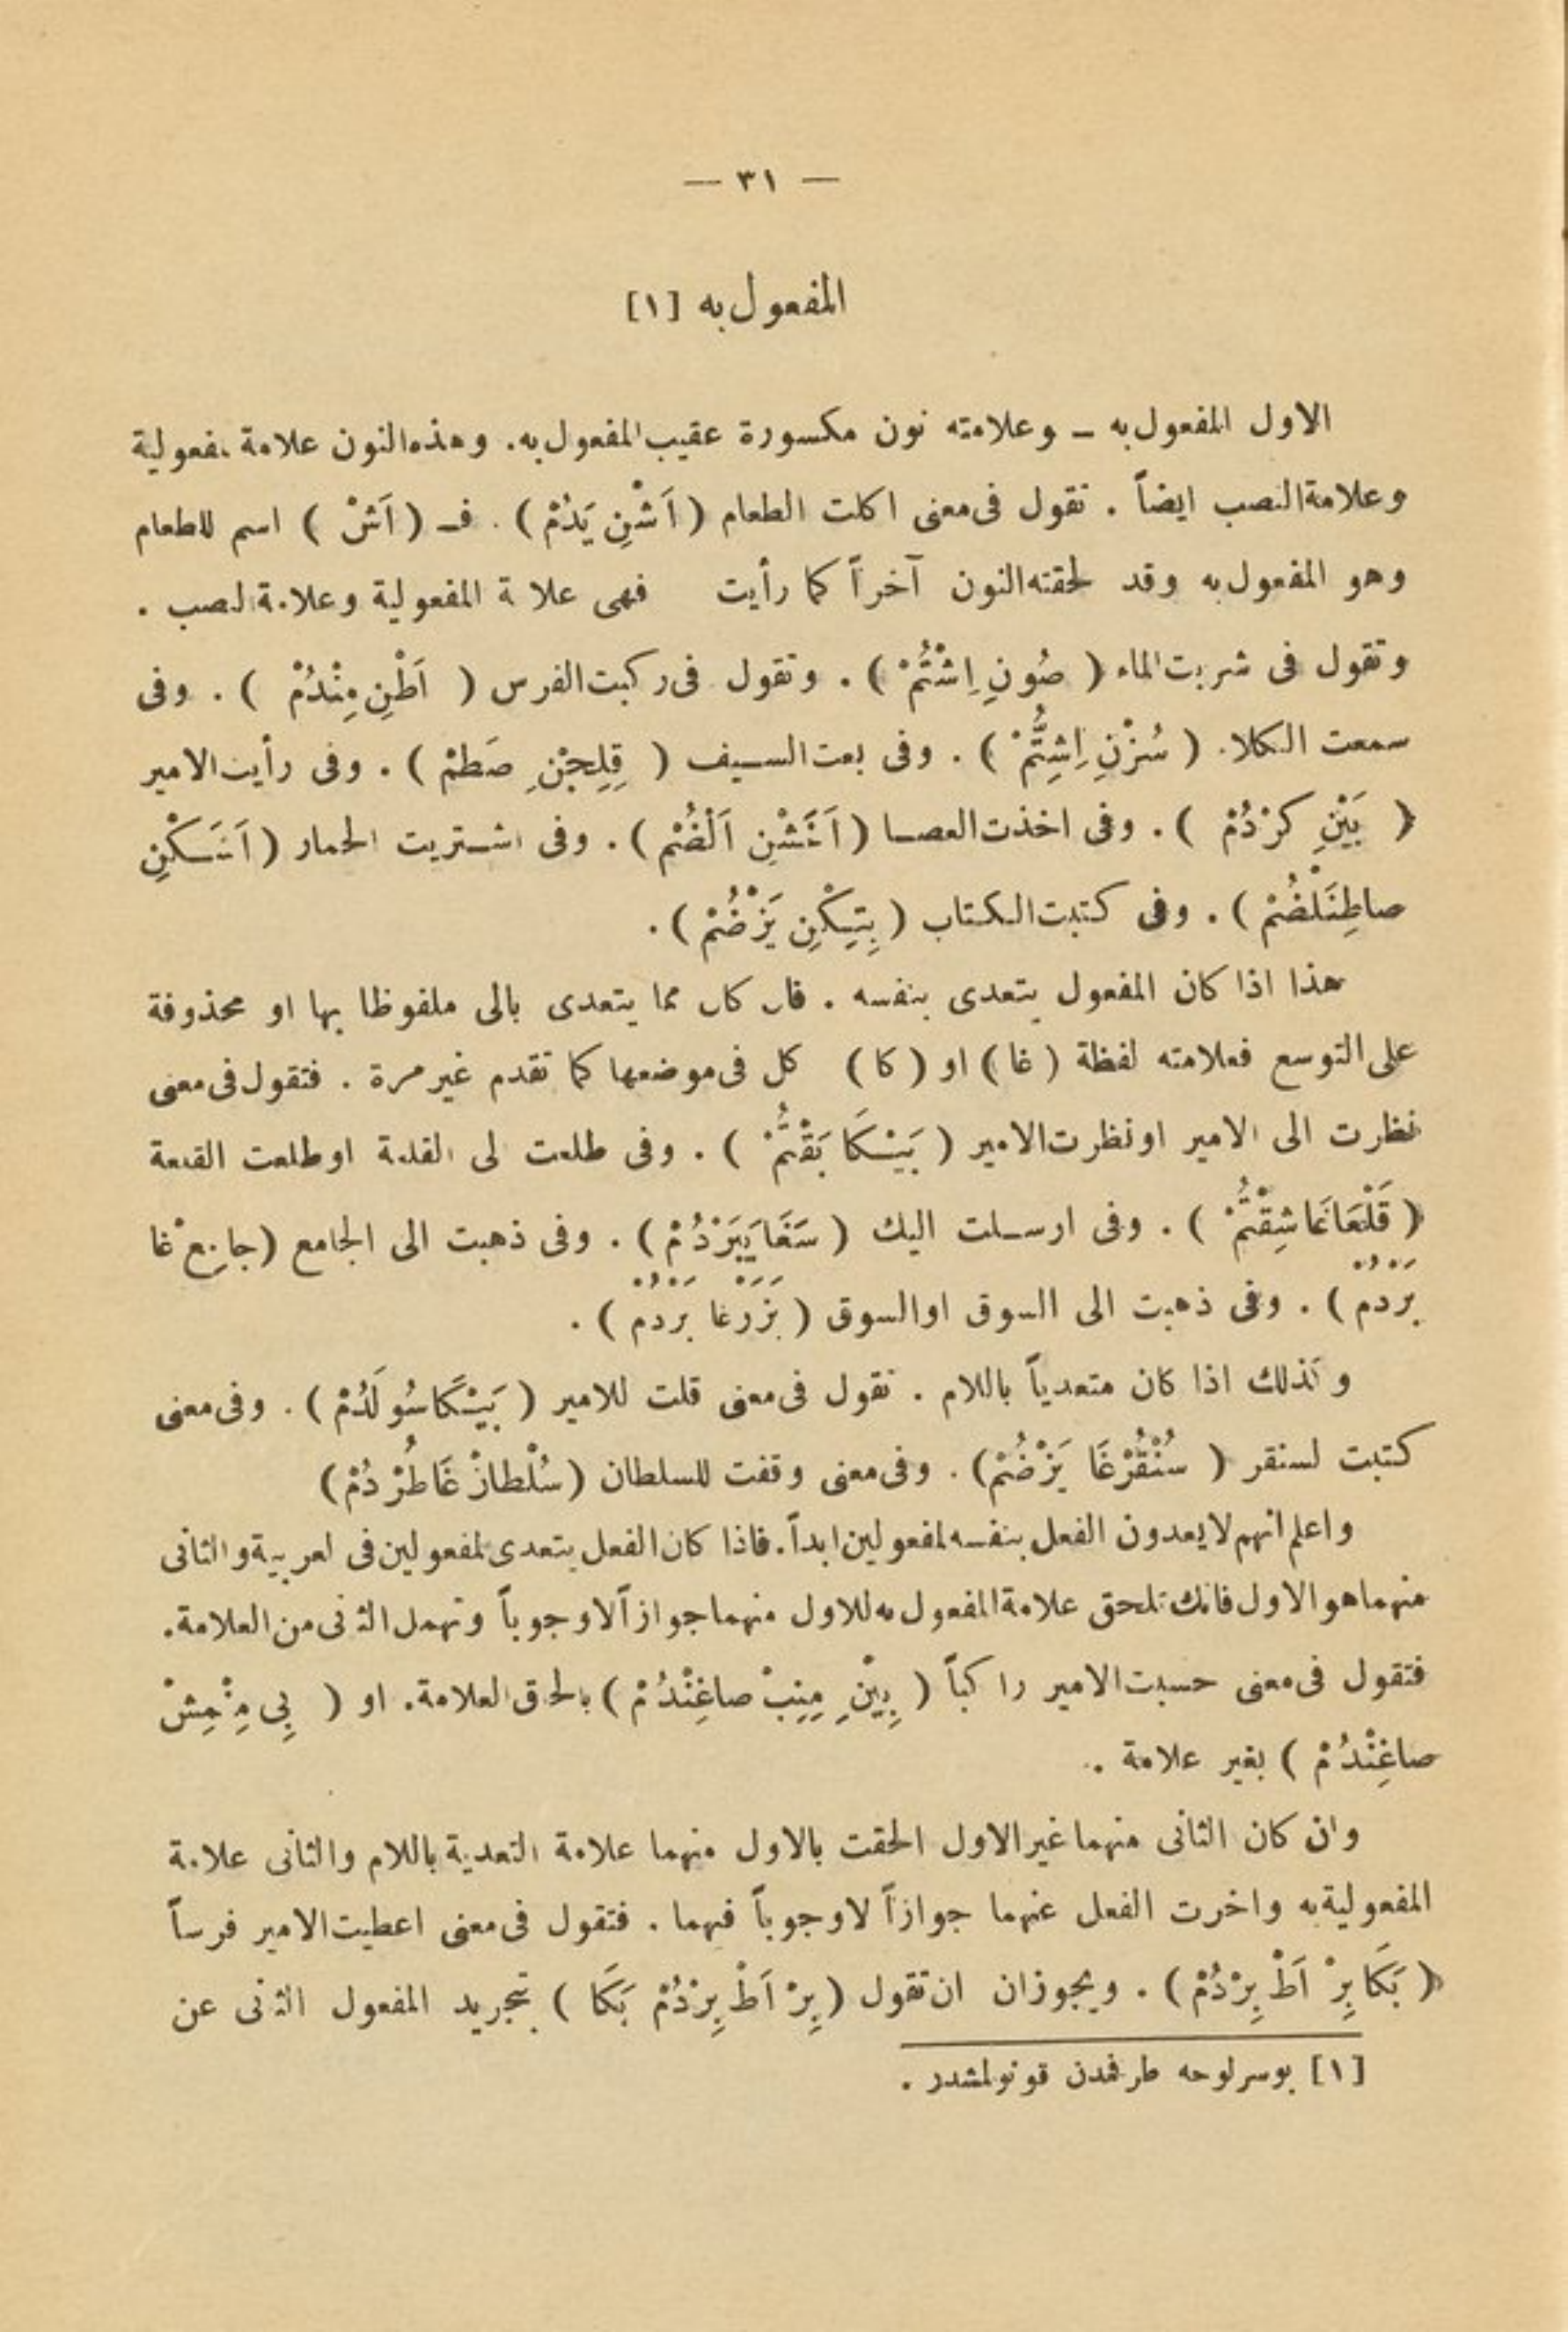 — ٣١ —
المفعول به [١]
الاول المفعول به ــ وعلامته نون مكسورة عقيب المفعول به. وهذه النون علامة لمفعولية
وعلامة النصب ايضاً . تقول فى معنى اكلت الطعام ( اَشْنِ يَدُمْ ) . فـ ( اَشْ ) اسم للطعام
وهو المفعول به وقد لحقته النون آخراً كما رأيت فهى علامة المفعولية وعلامة النصب .
وتقول فى شربت الماء ( صُونِ اِشْتُمْ ) . وتقول فى ركبت الفرس ( اَطْنِ مِنْدُمْ ) . وفى
سمعت الكلام ( سُزْنِ اِشِتُّمْ ) . وفى بعت السيف ( قِلِجْنِ صَطمْ ) . وفى رأيت الامير
( بَيْنِ كرْدُمْ ) . وفى اخذت العصا ( اَغَشْنِ اَلْضُمْ ) . وفى اشتريت الحمار ( اَشَكْنِ
صاطِنَلْضُمْ ) . وفى كتبت الكتاب ( بِتِكْنِ يَزْضُمْ ) .
هذا اذا كان المفعول يتعدى بنفسه . فان كان مما يتعدى بالى ملفوظا بها او محذوفة
على التوسع فعلامته لفظة ( غا ) او ( كا ) كل فى موضعها كما تقدم غير مرة . فتقول فى معنى
نظرت الى الامير او نظرت الامير ( بَيْكَا بَقْتُمْ ) . وفى طلعت الى القلعة او طلعت القلعة
( قَلْعَاغَا شِقْتُمْ ) . وفى ارسلت اليك ( سَغَا يَيَرْدُمْ ) . وفى ذهبت الى الجامع ( جامِعْ غا
بَرْدُمْ ) . وفى ذهبت الى السوق او السوق ( بَزَرْغا بَرْدُمْ ) .
وكذلك اذا كان متعدياً باللام . تقول فى معنى قلت للامير ( بَيْكَا سُولَدُمْ ) . وفى معنى
كتبت لسنقر ( سُنْقُرْغَا يَزْضُمْ ) . وفى معنى وقفت للسلطان ( سُلْطانْ غَا طُرْدُمْ )
واعلم انهم لا يعدون الفعل بنفسه لمفعولين ابداً . فاذا كان الفعل يتعدى لمفعولين فى العربية والثانى
منهما هو الاول فانك تلحق علامة المفعول به للاول منهما جوازاً لا وجوباً وتهمل الثانى من العلامة .
فتقول فى معنى حسبت الامير راكباً ( بِيْنِ مِنِبْ صاغِنْدُمْ ) بالحاق العلامة . او ( بِى مِنْمِشْ
صاغِنْدُمْ ) بغير علامة .
وان كان الثانى منهما غير الاول الحقت بالاول منهما علامة التعدية باللام والثانى علامة
المفعولية به واخرت الفعل عنهما جوازاً لا وجوباً فيهما . فتقول فى معنى اعطيت الامير فرساً
( بَكَا بِرْ اَطْ بِرْدُمْ ) . ويجوز ان ان تقول ( بِرْ اَطْ بِرْدُمْ بَكَا ) بتجريد المفعول الثانى عن
[١] بو سرلوحه طرفمدن قونولمشدر .